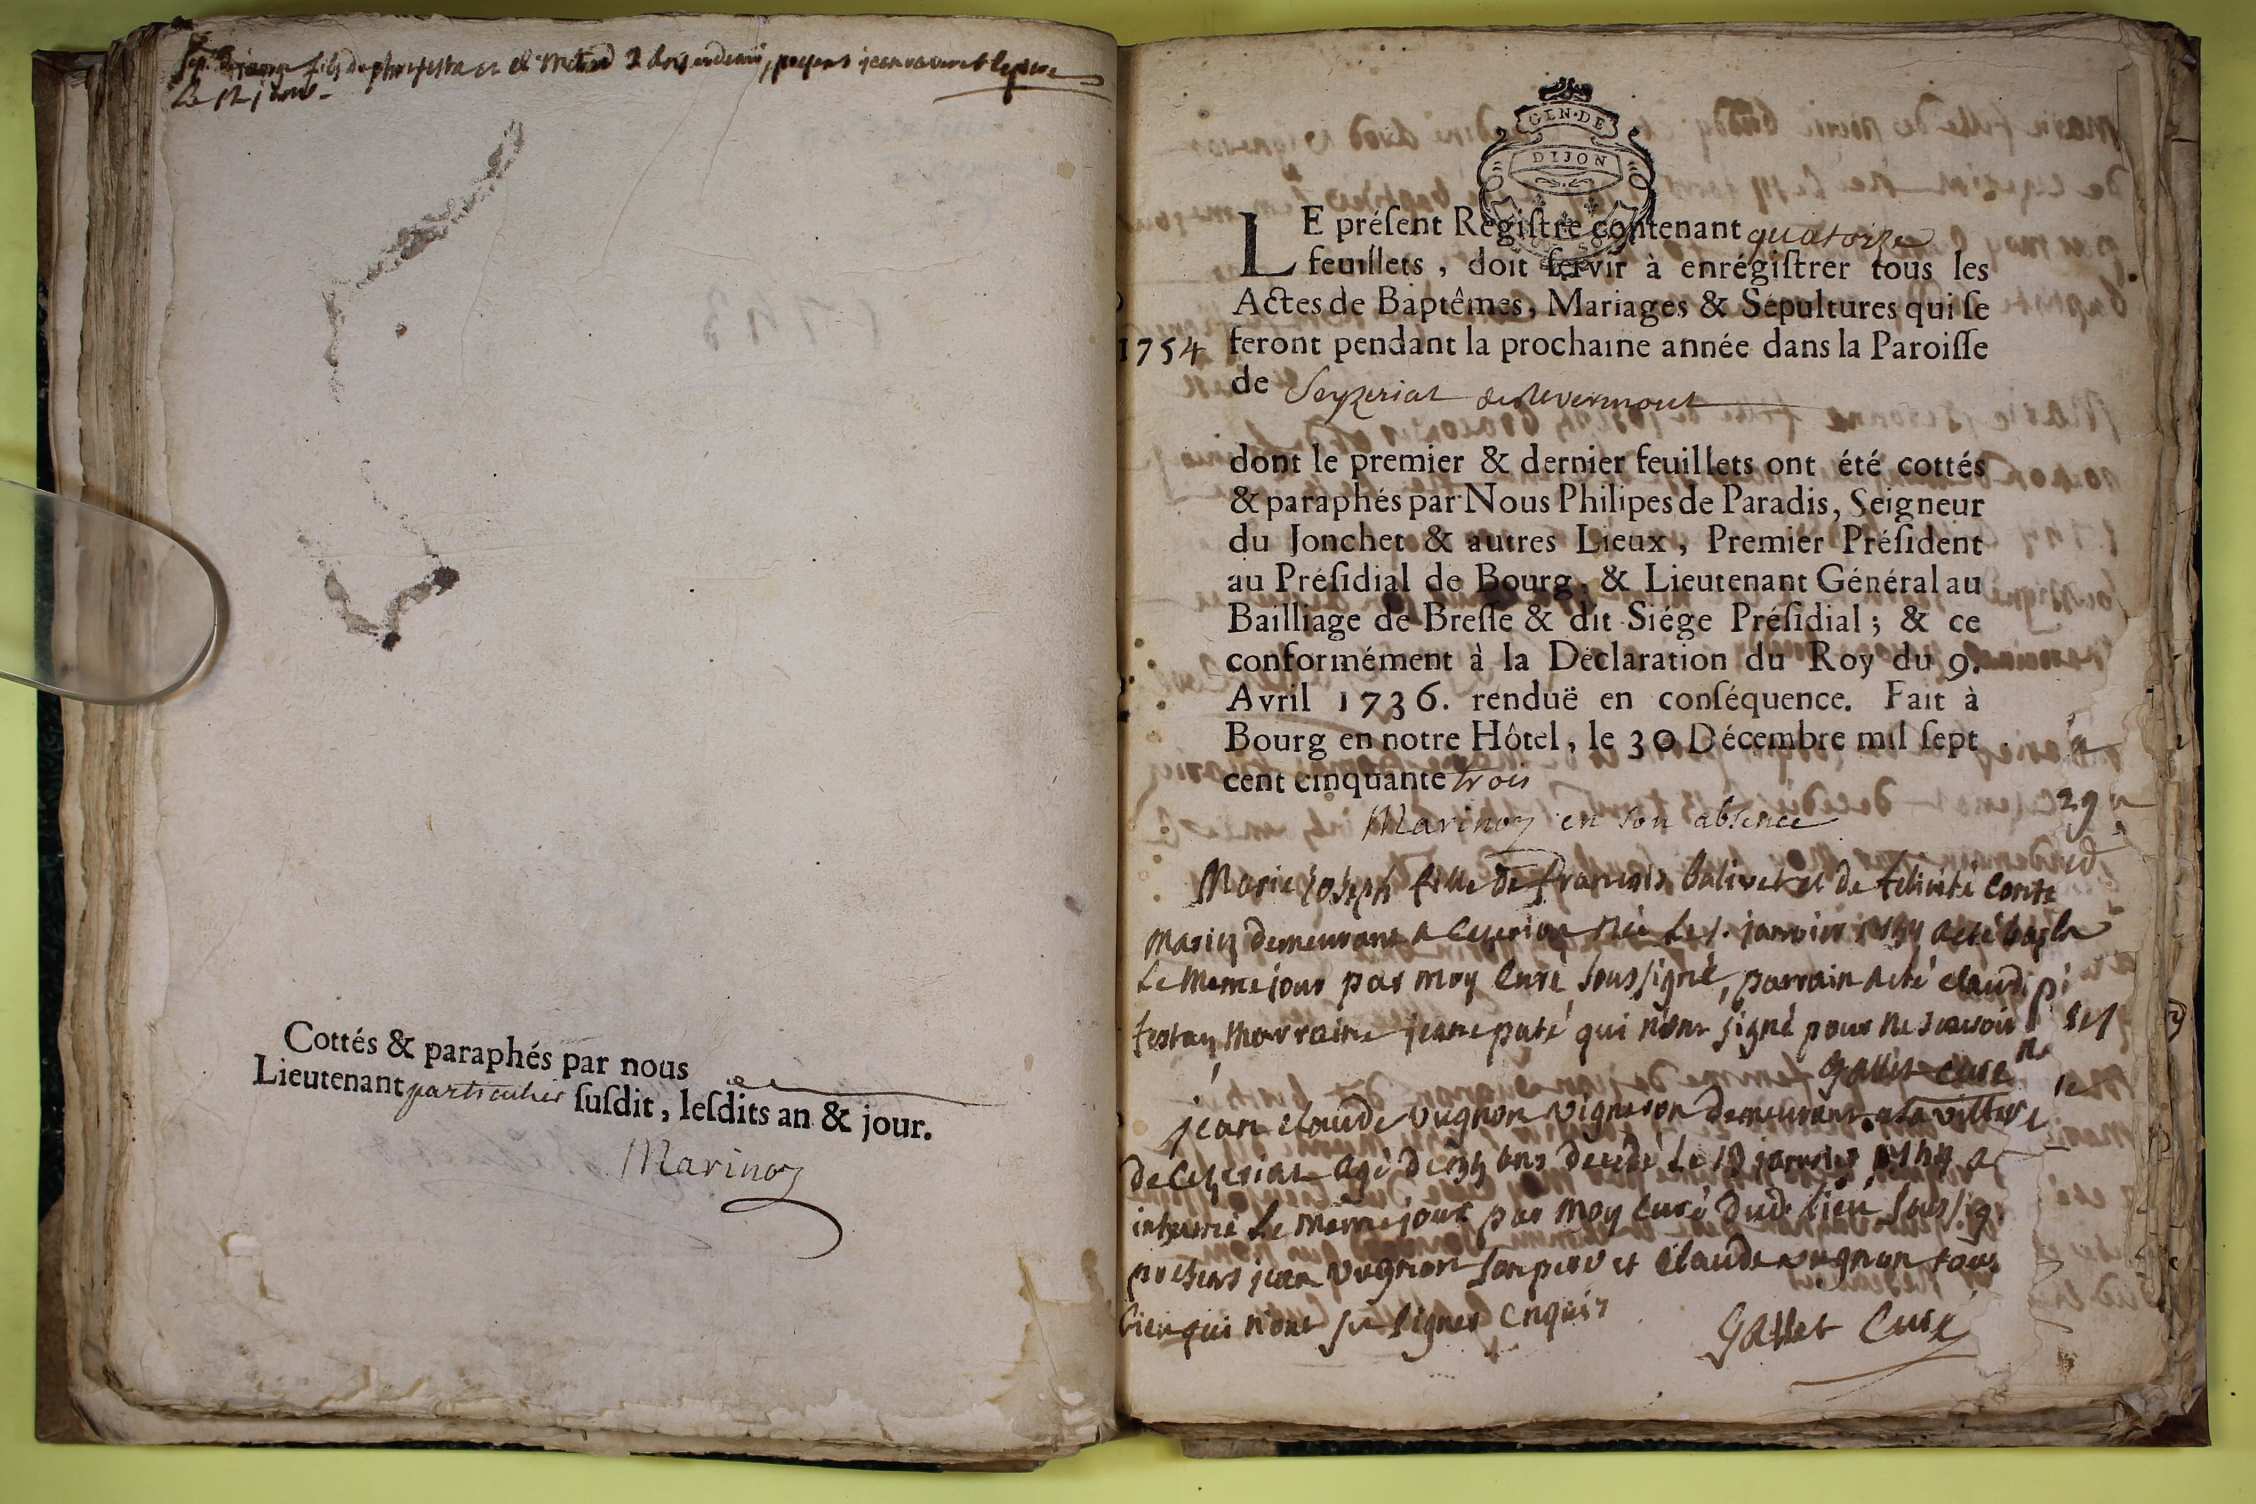 fils de et de presens jean et le pere
Le 12 janv
Cottés & paraphés par nous
Lieutenant particulier susdit, lesdits an & jour.
Marinoz
GEN·DE
DIJON
LE présent Registre contenant quatorze
feuillets, doit servir à enrégistrer tous les
Actes de Baptêmes, Mariages & Sépultures qui se
1754 feront pendant la prochaine année dans la Paroisse
de Seyzeriat de Revermont
dont le premier & dernier feuillets ont été cottés
& paraphés par Nous Philipes de Paradis, Seigneur
du Jonchet & autres Lieux, Premier Président
au Présidial de Bourg, & Lieutenant Général au
Bailliage de Bresse & dit Siége Présidial ; & ce
conformément à la Déclaration du Roy du 9.
Avril 1736. renduë en conséquence. Fait à
Bourg en notre Hôtel, le 30 Décembre mil sept
cent cinquante trois
Marinoz en son absence
29
Marie Joseph fille de françois balivet et de felicité Conte
mariez demeurans a Ceseriat née le 1. janvier 1754 a eté
Le meme jour par moy Curé soussigné, parrain a eté claude
marraine jeane paté qui n'ont signé pour ne scavoir
Gallet Curé
jean claude vugnon vigneron demeurant a la ville
de Ceseriat agé de ans decedé Le 19 janvier 1754 a
inhumé Le meme jour par moy Curé dud. lieu soussig.
presens jean vugnon son pere et Claude vugnon tous
lieu qui n'ont su signer Enquis
Gallet Curé